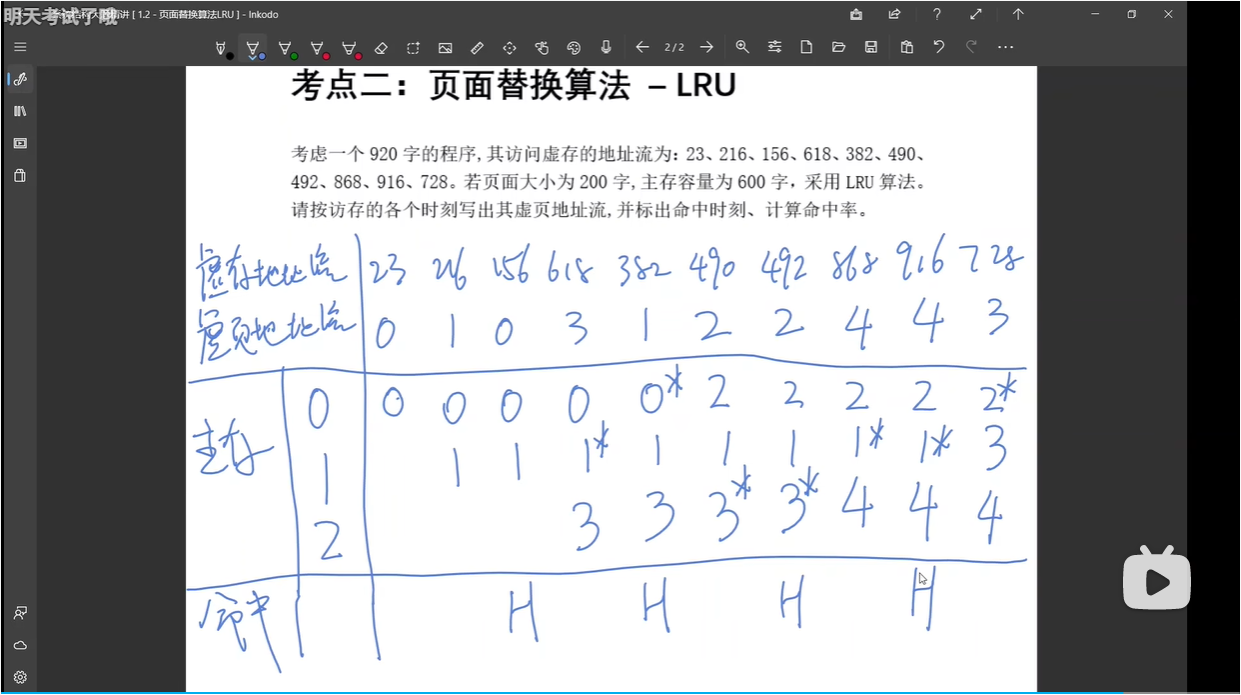 明天考试了哦 [ 1.2 - 页面替换算法LRU ] - Inkodo
2/2
考点二：页面替换算法 – LRU
考虑一个 920 字的程序,其访问虚存的地址流为：23、216、156、618、382、490、
492、868、916、728。若页面大小为 200 字,主存容量为 600 字，采用 LRU 算法。
请按访存的各个时刻写出其虚页地址流,并标出命中时刻、计算命中率。
虚存地址流 23 216 156 618 382 490 492 868 916 728
虚页地址流 0 1 0 3 1 2 2 4 4 3
0 0 0 0 0 0* 2 2 2 2 2*
主存 1 1 1 1* 1 1 1 1* 1* 3
2 3 3 3* 3* 4 4 4
命中 H H H H